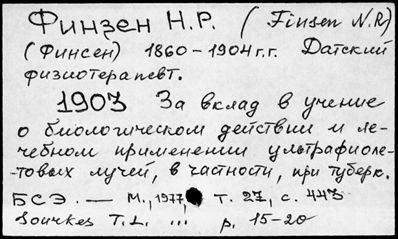 Финзен Н.Р. (Finsen N.R)
(Финсен) 1860-1904г.г. Датский
физиотерапевт.
1903 За вклад в учение
о биологическом действии и ле-
чебном применении ультрафиоле-
товых лучей, в частности, при туберк.
БСЭ. — М., 1977, т. 27, с. 443
Sourkes T.L. ... p. 15-20